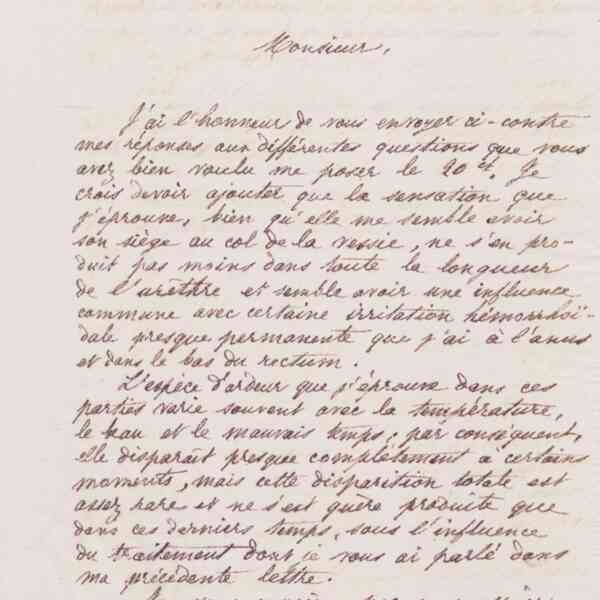 Monsieur,
J'ai l'honneur de vous envoyer ci-contre
mes réponses aux différentes questions que vous
avez bien voulu me poser le 20 ct. Je
crois devoir ajouter que la sensation que
j'éprouve, bien qu'elle me semble avoir
son siège au col de la vessie, ne s'en pro-
duit pas moins dans toute la longueur
de l'urèthre et semble avoir une influence
commune avec certaine irritation hémorrhoï-
dale presque permanente que j'ai à l'anus
et dans le bas du rectum.
L'espèce d'ardeur que j'éprouve dans ces
parties varie souvent avec la température,
le beau et le mauvais temps; par conséquent,
elle disparaît presque complètement à certains
moments, mais cette disparition totale est
assez rare et ne s'est guère produite que
dans ces derniers temps, sous l'influence
du traitement dont je vous ai parlé dans
ma précédente lettre.